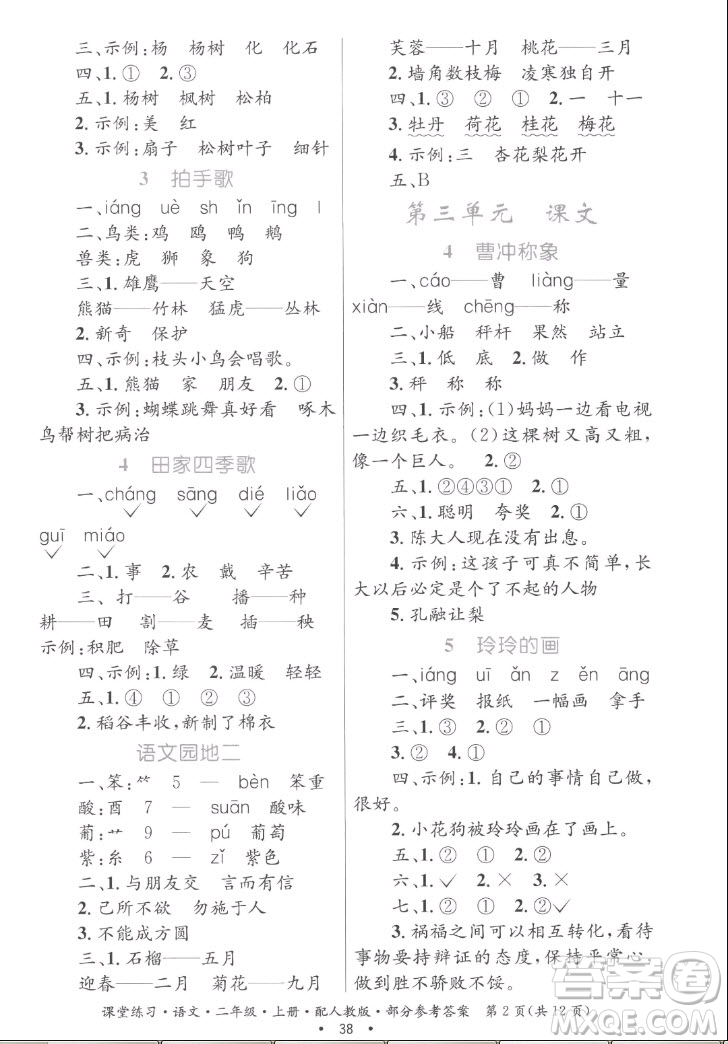 三、示例:杨　杨树　化　化石
四、1.①　②　2.③
五、1.杨树　枫树　松柏
2.示例:美　红
3.示例:扇子　松树叶子　细针
3　拍手歌
一、iáng　uè　sh　ǐn　īng　l
二、鸟类:鸡　鸥　鸭　鹅
兽类:虎　狮　象　狗
三、1.雄鹰——天空
熊猫——竹林　猛虎——丛林
2.新奇　保护
四、示例:枝头小鸟会唱歌。
五、1.熊猫　家　朋友　2.①
3.示例:蝴蝶跳舞真好看　啄木
鸟帮树把病治
4　田家四季歌
一、cháng　sāng　dié　liǎo
guī　miáo
二、1.事　2.农　戴　辛苦
三、打——谷　播——种
耕——田　割——麦　插——秧
示例:积肥　除草
四、示例:1.绿　2.温暖　轻轻
五、1.④　①　②　③
2.稻谷丰收,新制了棉衣
语文园地二
一、笨:⺮　5　—　bèn　笨重
酸:酉　7　—　suān　酸味
葡:艹　9　—　pú　葡萄
紫:糸　6　—　zǐ　紫色
二、1.与朋友交　言而有信
2.己所不欲　勿施于人
3.不能成方圆
三、1.石榴——五月
迎春——二月　菊花——九月
芙蓉——十月　桃花——三月
2.墙角数枝梅　凌寒独自开
四、1.③　②　①　2.一　十一
3.牡丹　荷花　桂花　梅花
4.示例:三　杏花梨花开
五、B
第三单元　课文
4　曹冲称象
一、cáo——曹　liàng——量
xiàn——线　chēng——称
二、小船　秤杆　果然　站立
三、1.低　底　2.做　作
3.秤　称　称
四、1.示例:(1)妈妈一边看电视
一边织毛衣。(2)这棵树又高又粗,
像一个巨人。2.③
五、1.②④③①　2.①
六、1.聪明　夸奖　2.①
3.陈大人现在没有出息。
4.示例:这孩子可真不简单,长
大以后必定是个了不起的人物
5.孔融让梨
5　玲玲的画
一、iáng　uī　ǎn　z　ěn　āng
二、评奖　报纸　一幅画　拿手
三、1.③　2.①　3.②
4.②　5.①
四、示例:1.自己的事情自己做,
很好。
2.小花狗被玲玲画在了画上。
五、①　②
六、1.✓　2.×　3.×
七、1.②　2.②
3.祸福之间可以相互转化,看待
事物要持辩证的态度,保持平常心,
做到胜不骄败不馁。
课堂练习·语文·二年级·上册·配人教版·部分参考答案　第2页(共12页)
· 38 ·
答案圈
MXQE.COM